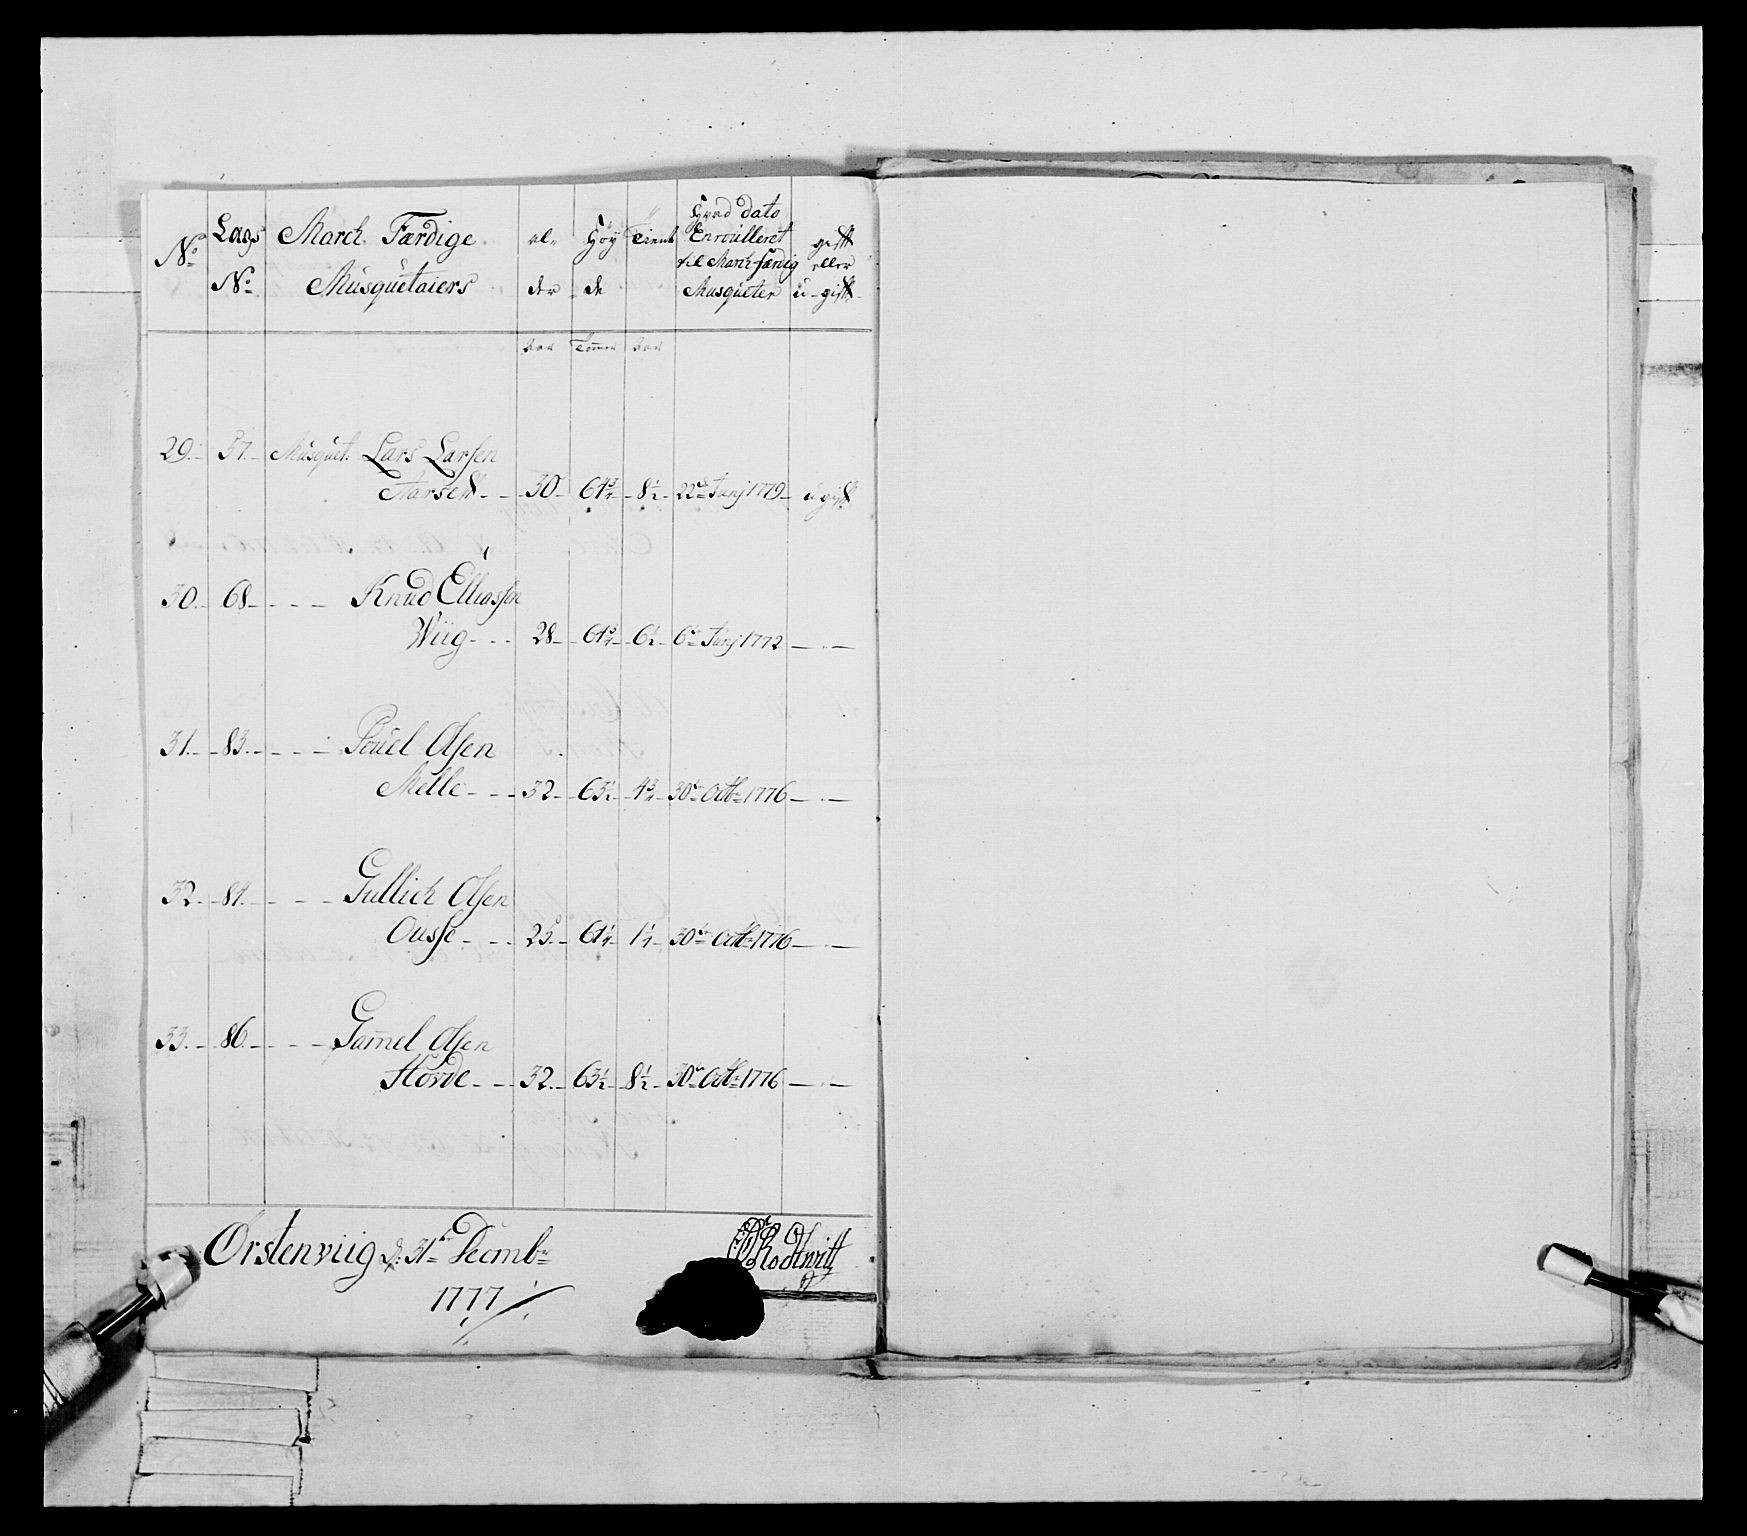 No Lags No March Færdige Musquetaiers al- der Høy de Tient Hvad dato Enroulleret til March færdig Musqueter gifft eller u-gifft
Aar Tommer Aar
29. 57. Musquet. Lars Larsen
Aarseth 30 61 3/4 8 1/2 22de Junj 1779 ugift
30. 68 Knud Elliassen
Wiig 28 61 3/4 6 1/2 6te Junj 1772
31. 83. Pouel Olsen
Melle 32 63 1/2 4 3/4 30te Octbr 1776
32. 84. Gullich Olsen
Ousse 25. 61 1/4 1 1/4 30te Octbr 1776
33. 86. Gam̄el Olsen
Hovde 32. 63 1/2 8 1/2 30te Octbr 1776
Ørstenviig d: 31te Decembr
1777